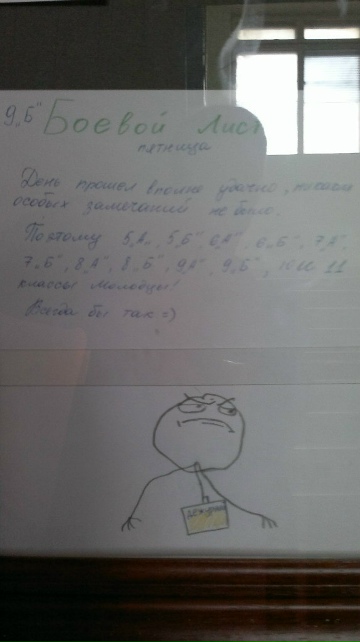 9 „Б" Боевой Лист
пятница
День прошел вполне удачно, никаких
особых замечаний не было.
Поэтому 5„А", 5„Б" 6„А", 6„Б", 7„А",
7„Б", 8„А", 8„Б", 9„А", 9„Б", 10 и 11
классы молодцы!
Всегда бы так =)
дежурный